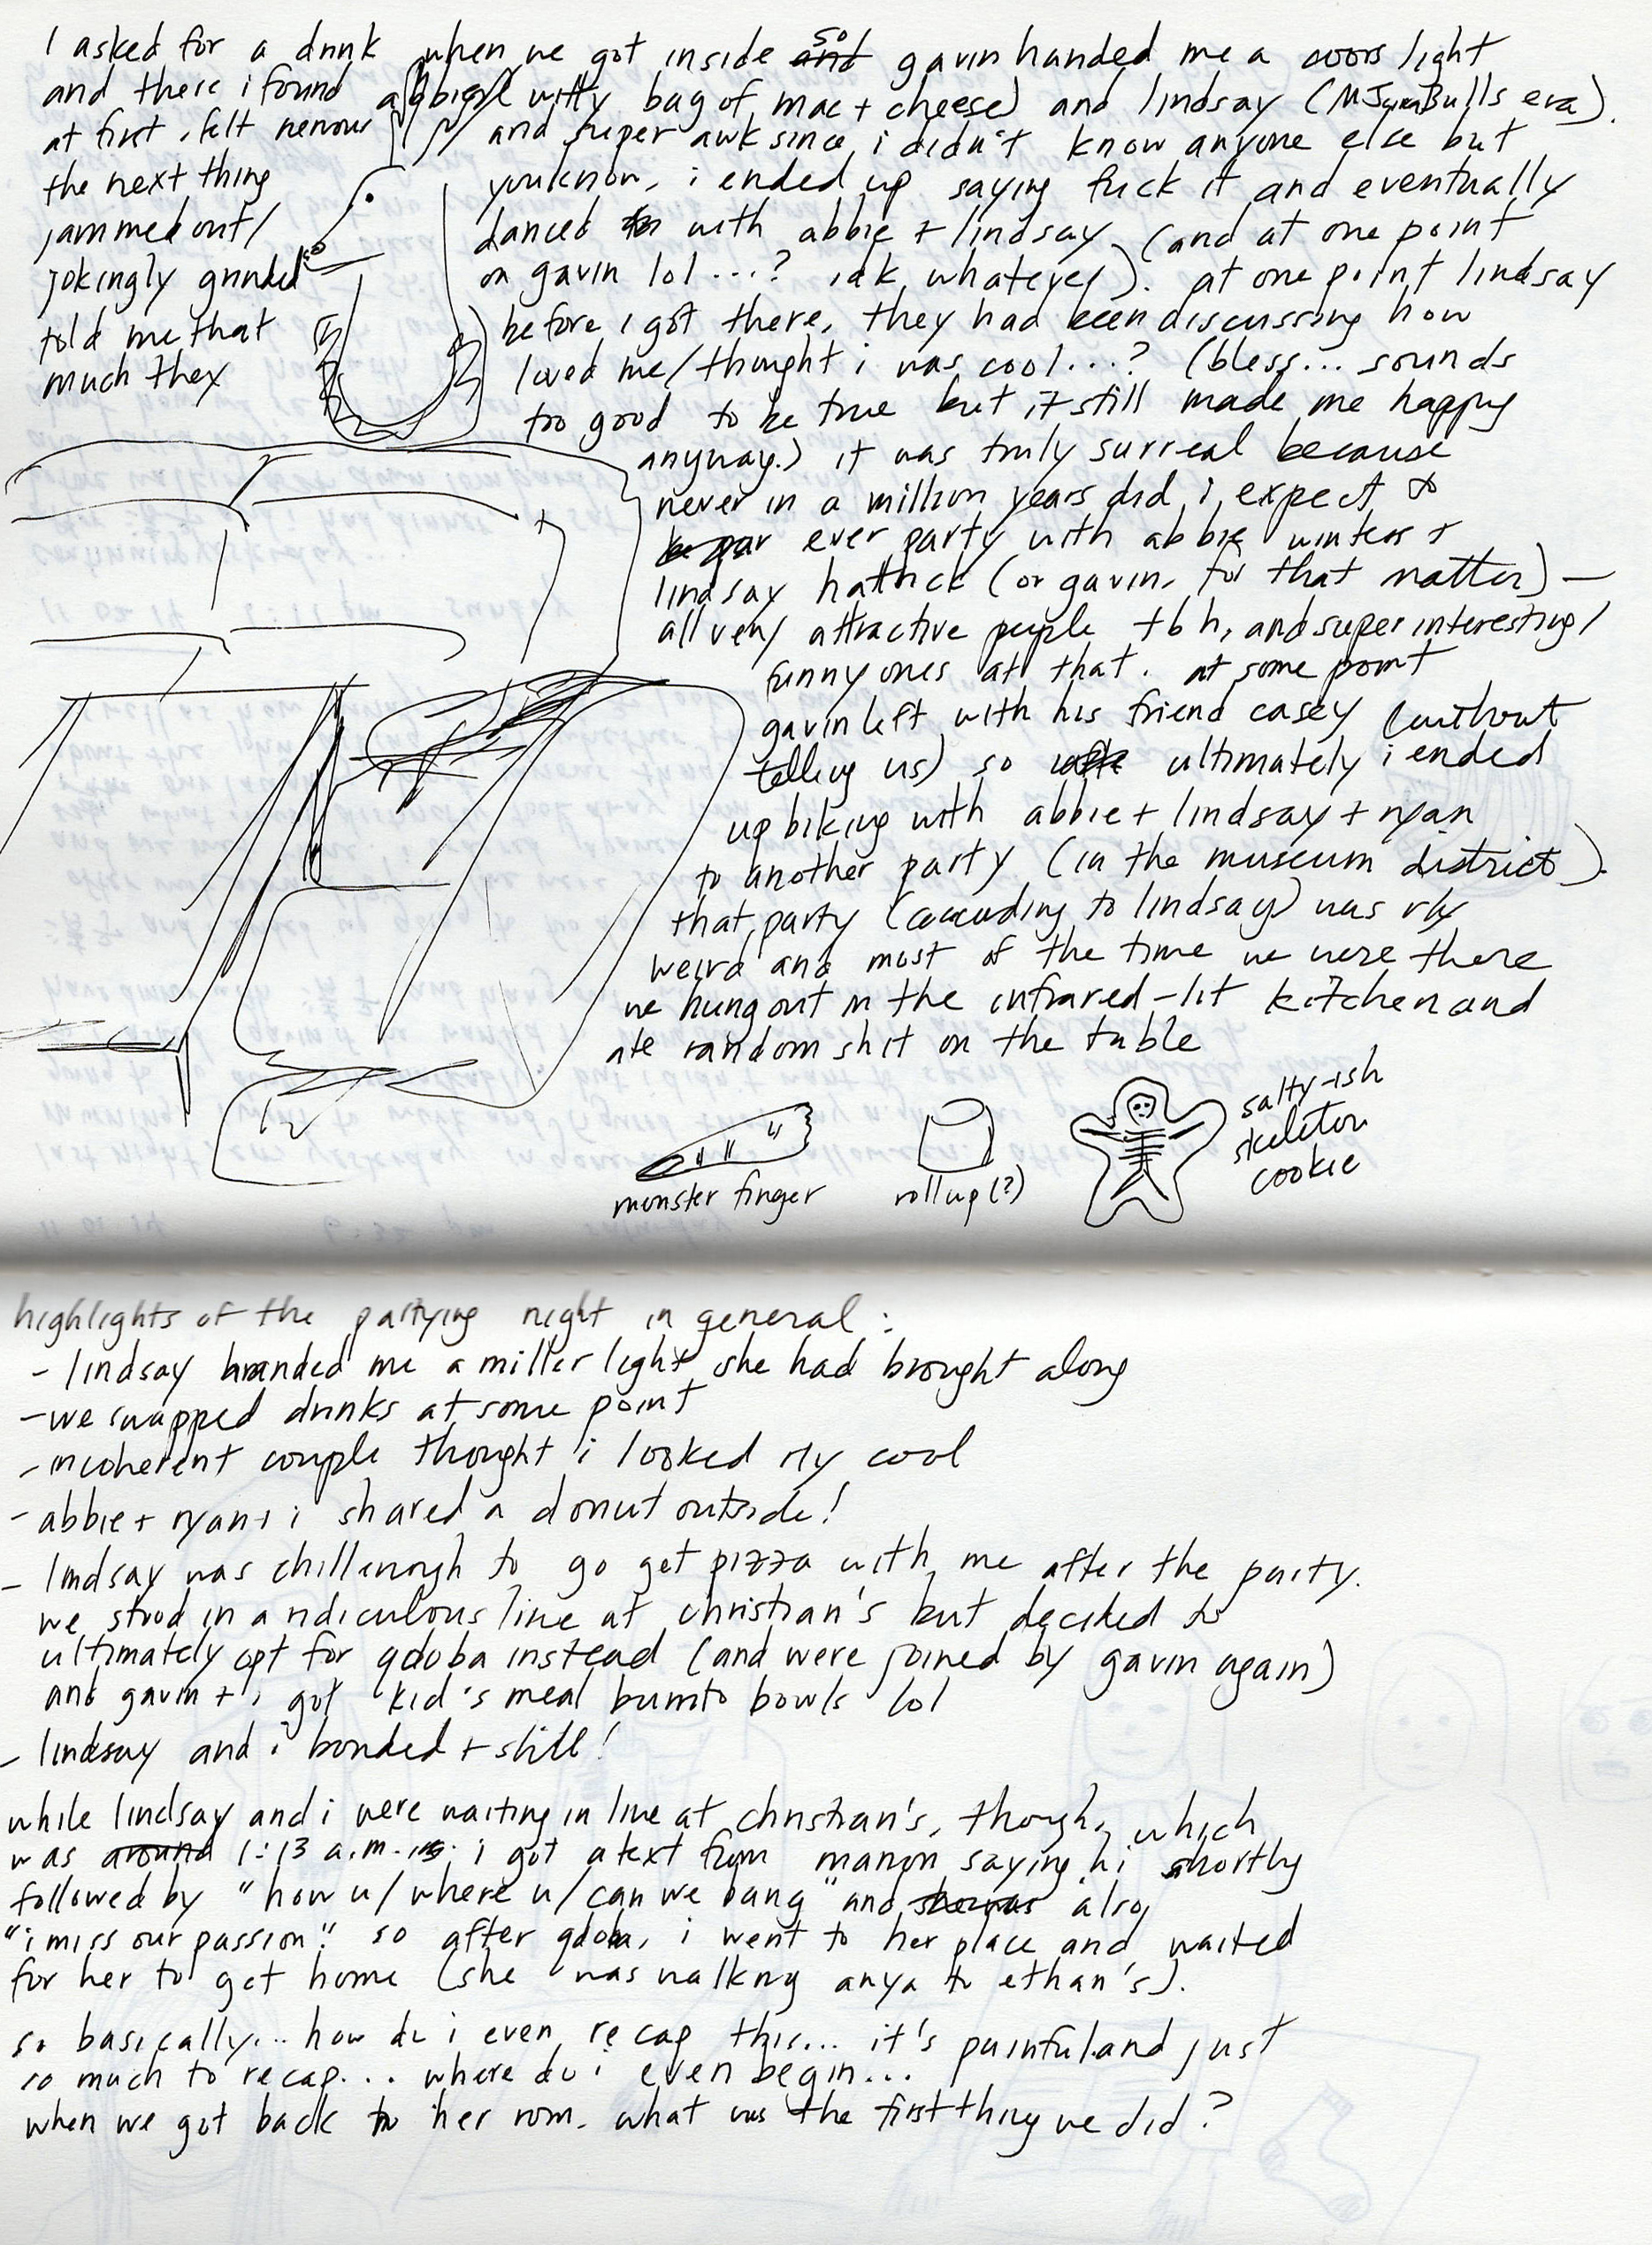 I asked for a drink when we got inside and so gavin handed me a coors light
and there i found abbie (witty bag of mac + cheese) and lindsay (MJ Bulls era).
at first i felt nervous and super awk since i didn't know anyone else but
the next thing you know, i ended up saying fuck it and eventually
jammed out/ danced with abbie + lindsay (and at one point
jokingly grinded on gavin lol...? idk, whatever). at one point lindsay
told me that before i got there, they had been discussing how
much they loved me/thought i was cool...? (bless... sounds
too good to be true but it still made me happy
anyway.) it was truly surreal because
never in a million years did i expect to
ever party with abbie winters +
lindsay hattrick (or gavin, for that matter) —
all very attractive people tbh, and super interesting/
funny ones at that. at some point
gavin left with his friend casey (without
telling us) so ultimately i ended
up biking with abbie + lindsay + ryan
to another party (in the museum district).
that party (according to lindsay) was rly
weird and most of the time we were there
we hung out in the infrared-lit kitchen and
ate random shit on the table
monster finger
rollup (?)
salty-ish
skeleton
cookie
highlights of the partying night in general:
- lindsay handed me a miller light she had brought along
- we swapped drinks at some point
- incoherent couple thought i looked rly cool
- abbie + ryan + i shared a donut outside!
- lindsay was chill enough to go get pizza with me after the party.
we stood in a ridiculous line at christian's but decided to
ultimately opt for qdoba instead (and were joined by gavin again)
and gavin + i got kid's meal burrito bowls lol
- lindsay and i bonded + shit!
while lindsay and i were waiting in line at christian's, though, which
was around 1:13 a.m. i got a text from manon saying hi shortly
followed by "how u/where u/can we bang" and also
"i miss our passion." so after qdoba, i went to her place and waited
for her to get home (she was walking anya to ethan's).
so basically... how do i even recap this... it's painful and just
so much to recap... where do i even begin...
when we got back to her room, what was the first thing we did?